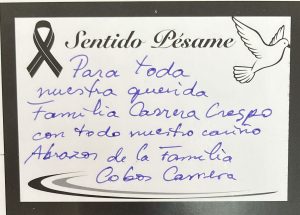 Sentido Pésame
Para toda
nuestra querida
Familia Carrera Crespo
con todo nuestro cariño
Abrazos de la Familia
Cobos Carrera